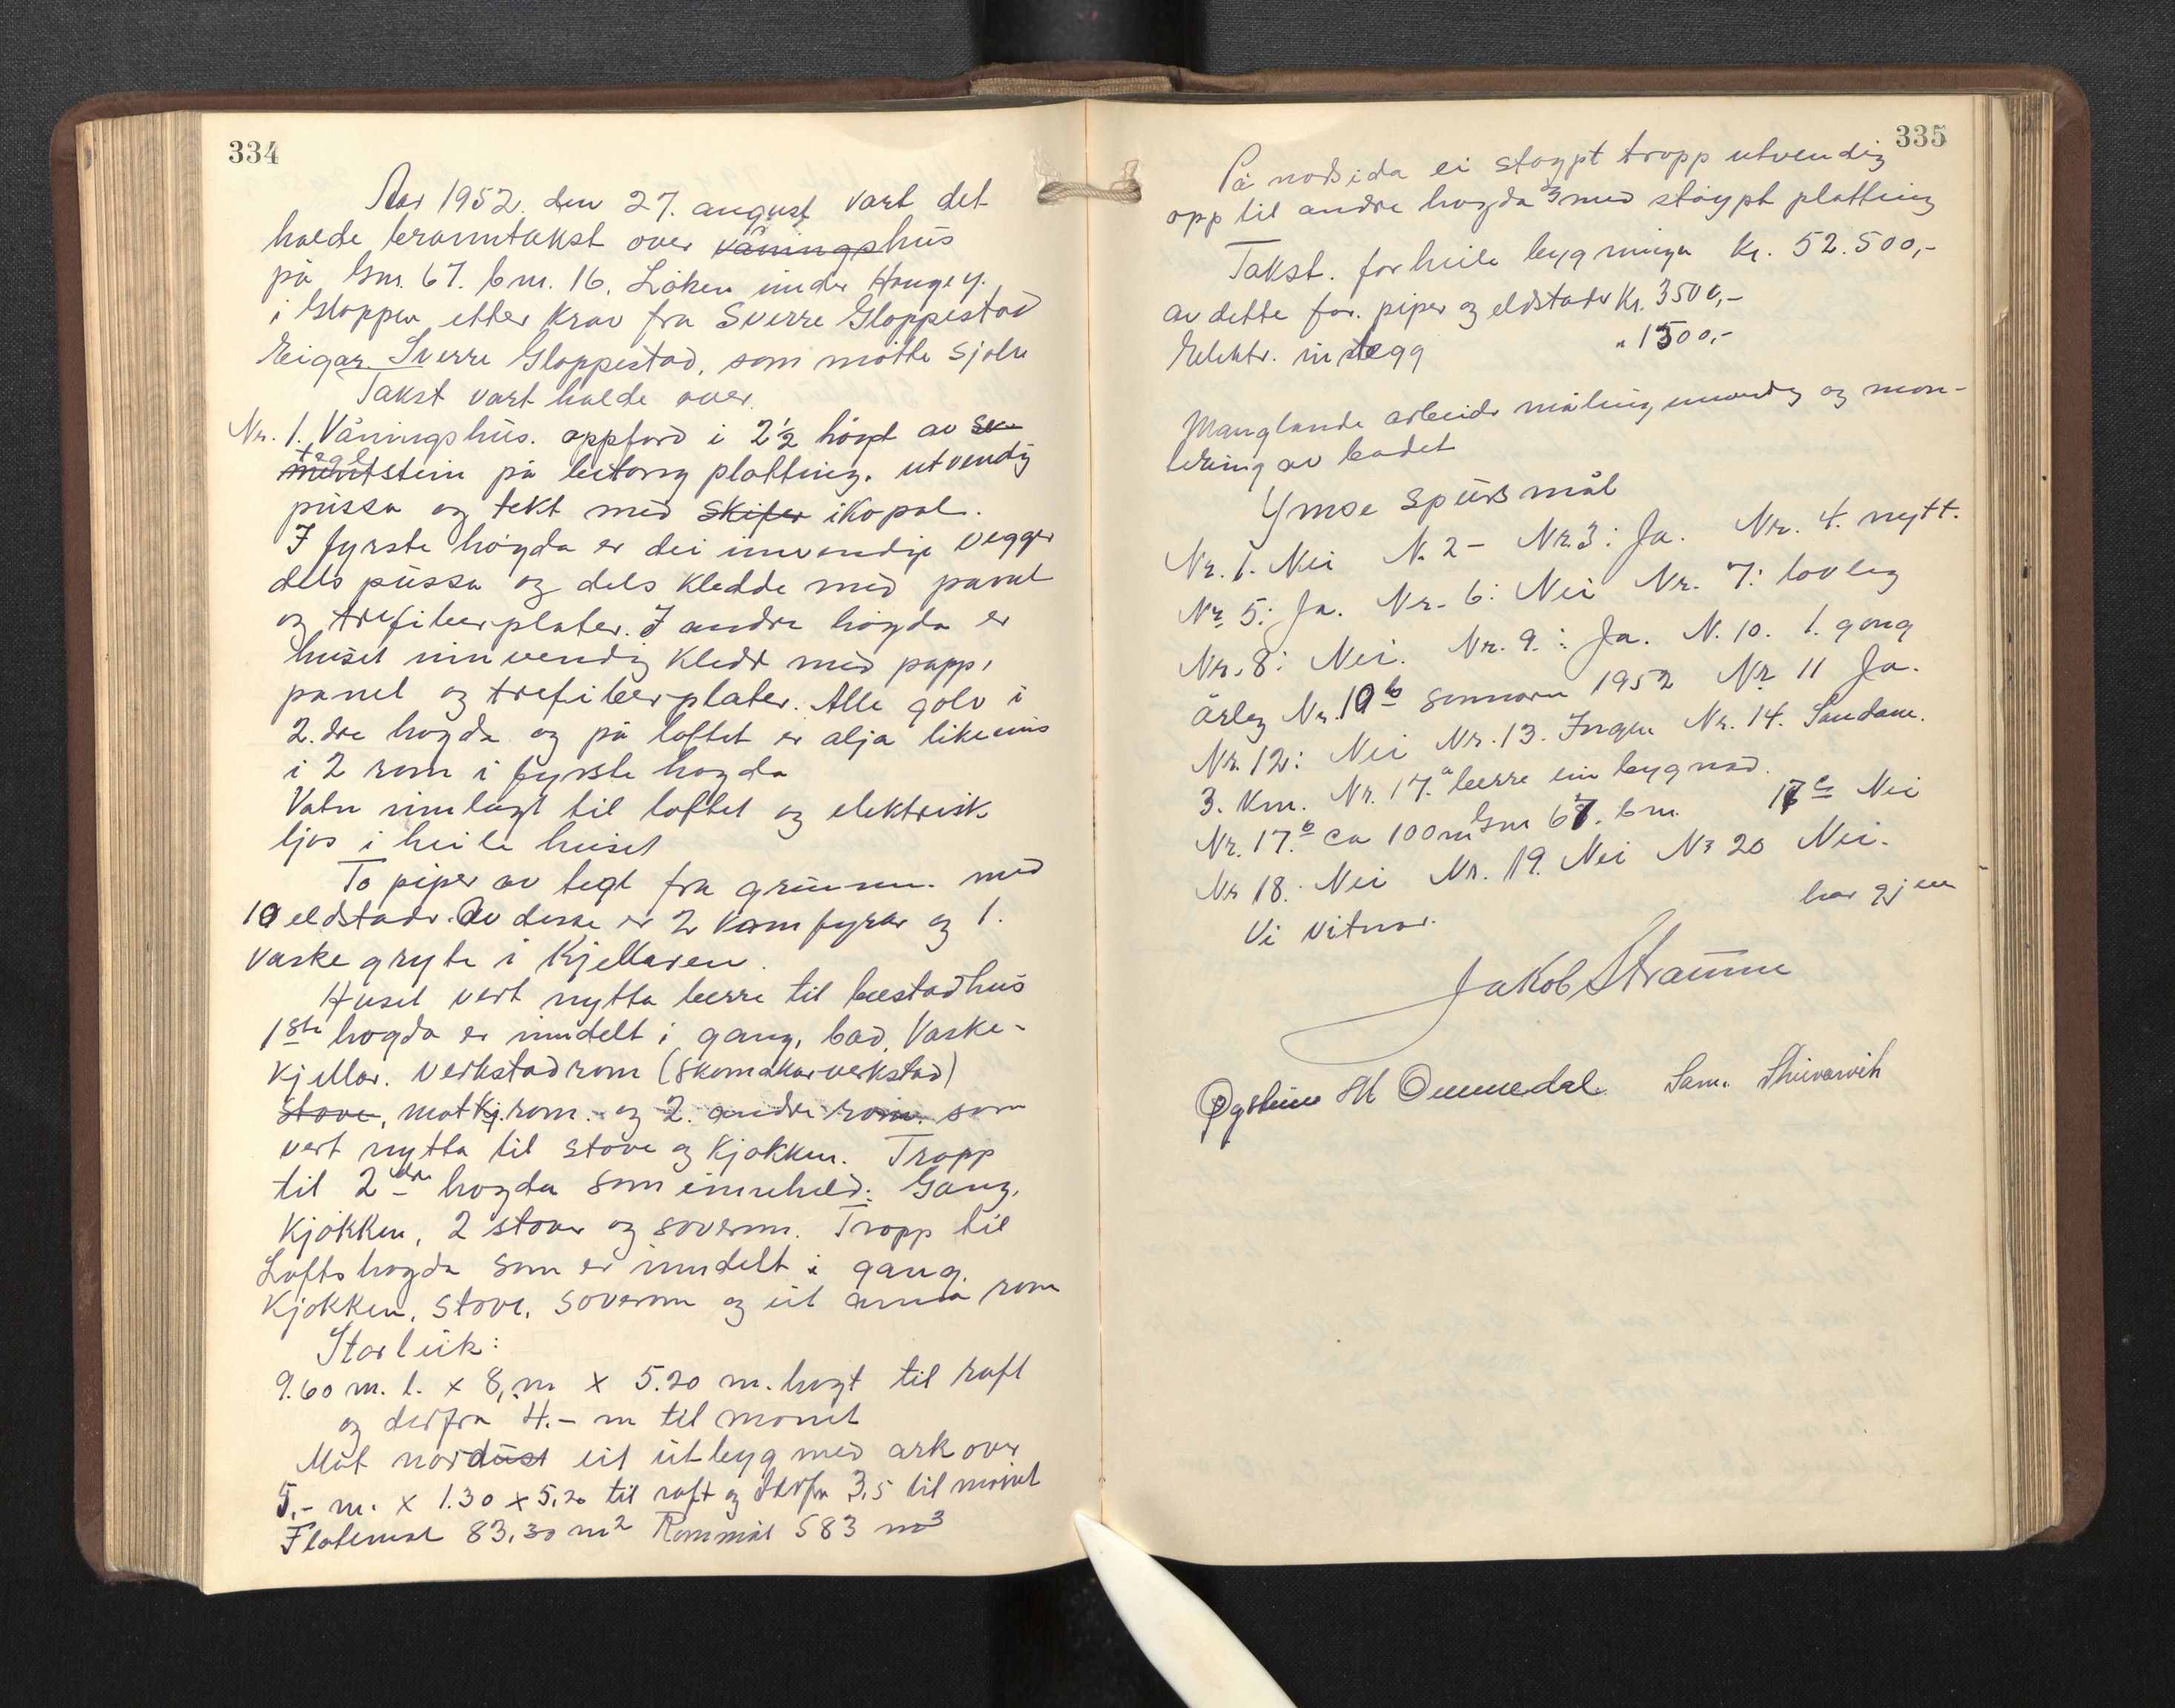 334
Aar 1952. den 27. august vart det
halde branntakst over våningshus
på Gnr. 67. bnr. 16. Løken under Hauge y.
i Gloppen etter krav fra Sverre Gloppestad
Eigar Sverre Gloppestad, som møtte sjølv
Takst vart halde over.
Nr. 1. Våningshus. oppførd i 2½ høgd av se-
tegl
mentstein på betong platting. utvendig
pussa og tekt med Skifer ikopal.
I fyrste høgda er dei innvendige vegger
dels pussa og dels kledde med panel
og trefiberplater. I andre høgda er
huset innvendig kledd med papp,
panel og trefiberplater. Alle golv i
2.dre høgda og på loftet er olja likeeins
i 2 rom i fyrste høgda
Vatn innlagt til loftet og elektrisk
ljos i heile huset
To piper av tegl fra grunnen med
10 eldstadr. Av desse er 2 komfyrar og 1.
vaskegryte i Kjellaren.
Huset vert nytta berre til bustadhus
1ste høgda er inndelt i gang, bad, Vaske-
kjellar. Verkstadrom (skomakarverkstad)
Stove, matkj.rom. og 2. andre rom. som
vert nytta til stove og kjøkken. Tropp
til 2dre høgda som inneheld: Gang,
kjøkken, 2 stover og soverom. Tropp til
Loftshøgda som er inndelt i gang.
Kjøkken, stove, soverom og eit anna rom
Storleik:
9.60 m. l. x 8,- m x 5.20 m. høgt til raft
og derfra 4.- m til mønet
Mot nordaust eit utbygg med ark over
5,- m. x 1.30 x 5,20 til raft og derfra 3,5 til mønet
Flatemål 83,30 m² Rommål 583 m³
335
På nordsida ei støypt tropp utvendig
opp til andre høgda med støypt platting
Takst. for heile bygninga kr. 52.500,-
av dette for. piper og eldstader Kr. 3500,-
Elektr. innlegg " 1500,-
Manglande arbeide måling innvendig og mon-
tering av badet
Ymse spursmål
Nr. 1. Nei N. 2 - Nr. 3: Ja. Nr. 4. nytt.
Nr 5: Ja. Nr. 6: Nei Nr. 7: lovleg
Nr. 8: Nei. Nr. 9.: Ja. N. 10. 1. gong
årleg Nr. 10 b sommaren 1952 Nr 11 Ja.
Nr. 12: Nei Nr. 13. Ingen Nr. 14. Sandane.
3. km. Nr. 17. a berre ein bygnad.
Nr. 17. b ca 100 m Gnr 67. bnr. 17 c Nei
Nr 18. Nei Nr. 19. Nei Nr 20 Nei.
Vi vitnar. har gjen
Jakob Straume
Øystein M Ommedal. Sam.